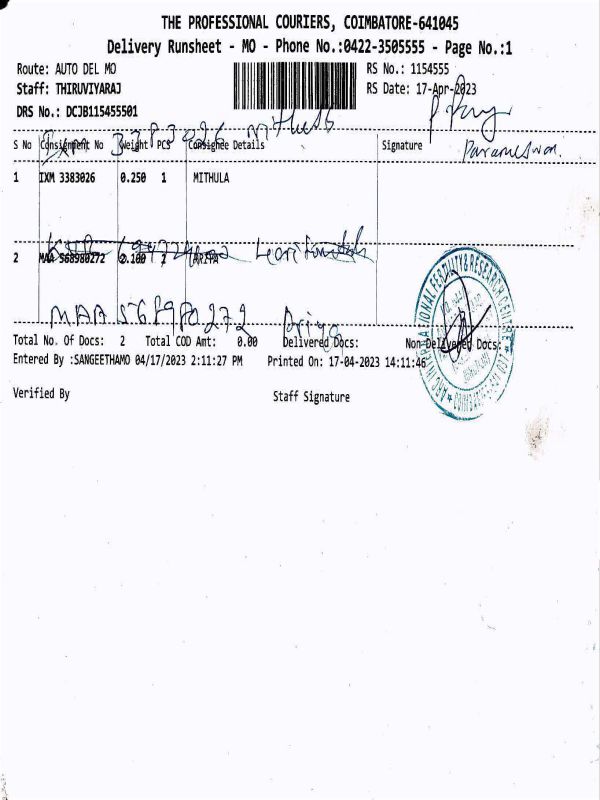 THE PROFESSIONAL COURIERS, COIMBATORE-641045
Delivery Runsheet - MO - Phone No.:0422-3505555 - Page No.:1
Route: AUTO DEL MO
RS No.: 1154555
Staff: THIRUVIYARAJ
RS Date: 17-Apr-2023
DRS No.: DCJB115455501
IXM 3383026 Mithula
S No Consignment No Weight PCS Consignee Details Signature
Parameswari
1 IXM 3383026 0.250 1 MITHULA
2 MAA 568980272 0.100 1
MAA 568980272 Ariya
Total No. Of Docs: 2 Total COD Amt: 0.00 Delivered Docs: Non-Delivered Docs:
Entered By :SANGEETHAMO 04/17/2023 2:11:27 PM Printed On: 17-04-2023 14:11:46
Verified By Staff Signature
INTERNATIONAL FERTILITY & RESEARCH CENTRE